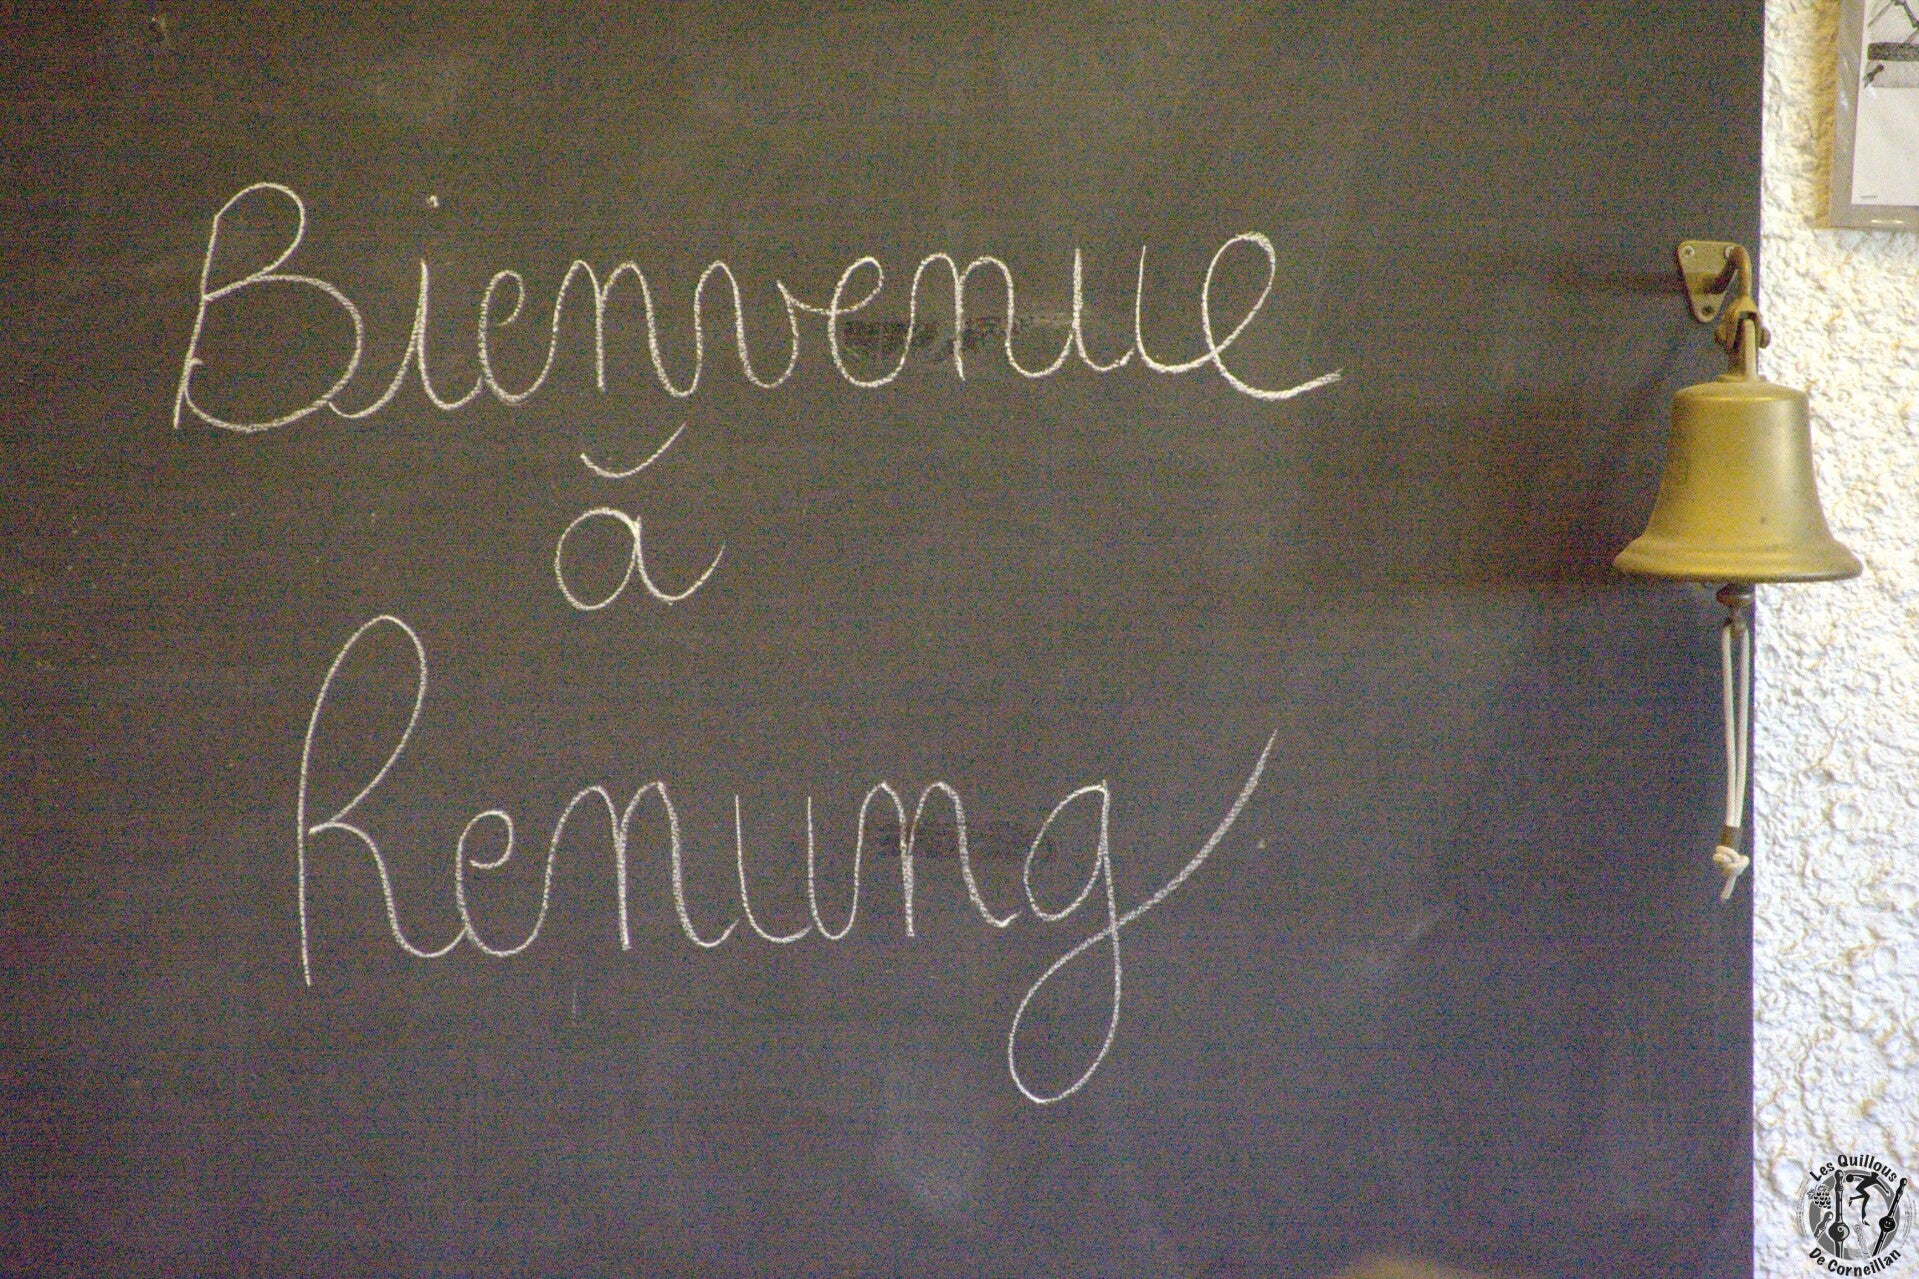 Bienvenue
à
Renung
Les Quillous
De Corneillan